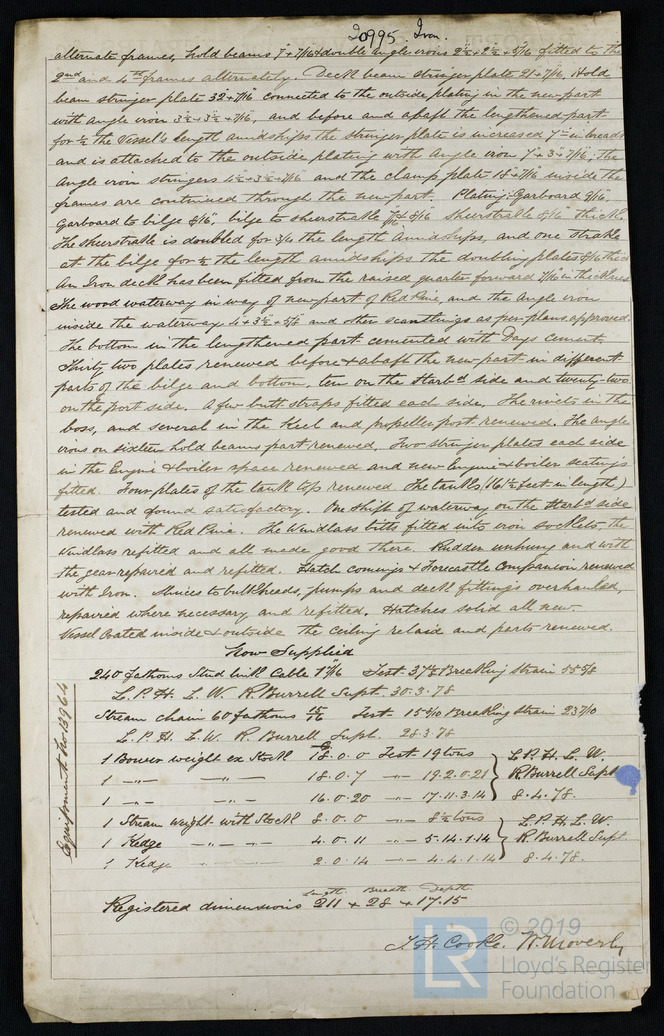 20995 Iron.
alternate frames, hold beams 7" + 7/16 + double angle irons 2½ + 2½ + 5/16 fitted to the
2nd and 4th frames alternately. Deck beam stringer plate 21 + 7/16, Hold
beam stringer plate 32 + 7/16" connected to the outside plating in the new part
with angle iron 3½ + 3½ + 7/16, and before and abaft the lengthened part
for ½ the Vessel's length amidships the stringer plate is increased 7" in breadth
and is attached to the outside plating with Angle iron 7" + 3" + 7/16". The
Angle iron stringers 4½ + 3½ + 7/16 and the clamp plate + 7/16 inside the
frames are continued through the new part. Plating: Garboard 9/16",
Garboard to bilge 8/16", bilge to sheerstrake 7 + 8/16 Sheerstrake 8/16 thick
The sheerstrake is doubled for 3/4 the length Amidships, and one strake
at the bilge for ½ the length amidships the doubling plates 8/16 thick
An Iron deck has been fitted from the raised quarter forward 7/16 in thickness
The wood waterway in way of new part of Red Pine, and the angle iron
inside the waterway 4 + 3½ + 5/16 and other scantlings as per plans approved.
The bottom in the lengthened part cemented with Days cement.
Thirty two plates renewed before & abaft the new part in different
parts of the bilge and bottom, ten on the Starbd side and twenty-two
on the port side. A few butt straps fitted each side. The rivets in the
boss, and several in the Keel and propeller post renewed. The angle
irons on sixteen hold beams part renewed, Two stringer plates each side
in the Engine & boiler space renewed and new Engine & boiler seatings
fitted. Four plates of the tank top renewed. The tanks (161½ feet in length)
tested and found satisfactory. One shift of waterway on the Starbd side
renewed with Red Pine. The Windlass bitts fitted into iron sockets, the
Windlass refitted and all made good there. Rudder unhung and with
the gear repaired and refitted. Hatch comings & Forecastle Companion renewed
with Iron. Sluices to bulkheads, pumps and deck fittings overhauled,
repaired where necessary and refitted. Hatches solid all new
Vessel Coated inside & outside the ceiling relaid and parts renewed.
Now Supplied
240 fathoms Stud link Cable 1 9/16 Test 37½ Breaking Strain 55 5/8
L. P. H. L. W. R Burrell Supt. 30.3.78
Stream chain 60 fathoms 15/16 Test 15 8/10 Breaking Strain 23 7/10
L. P. H. L. W. R. Burrell Supt. 28.3.78
1 Bower weight ex Stock 18.0.0 Test 19 tons L. P. H. L. W.
1 -"- -"- 18.0.7 -"- 19.2.0.21 R. Burrell Supt
1 -"- -"- 16.0.20 -"- 17.11.3.14 8.4.78.
1 Stream weight with Stock 8.0.0 -"- 8½ tons L. P. H. L. W.
1 Kedge -"- -"- -"- 4.0.11 -"- 5.14.1.14 R. Burrell Supt
1 Kedge 2.0.14 -"- 4.4.1.14 8.4.78.
Equipment No 13964
length Breadth Depth
Registered dimensions 211 + 28 + 17.15
T. H. Cooke. W. Moverly
LR © 2019
Lloyd's Register
Foundation